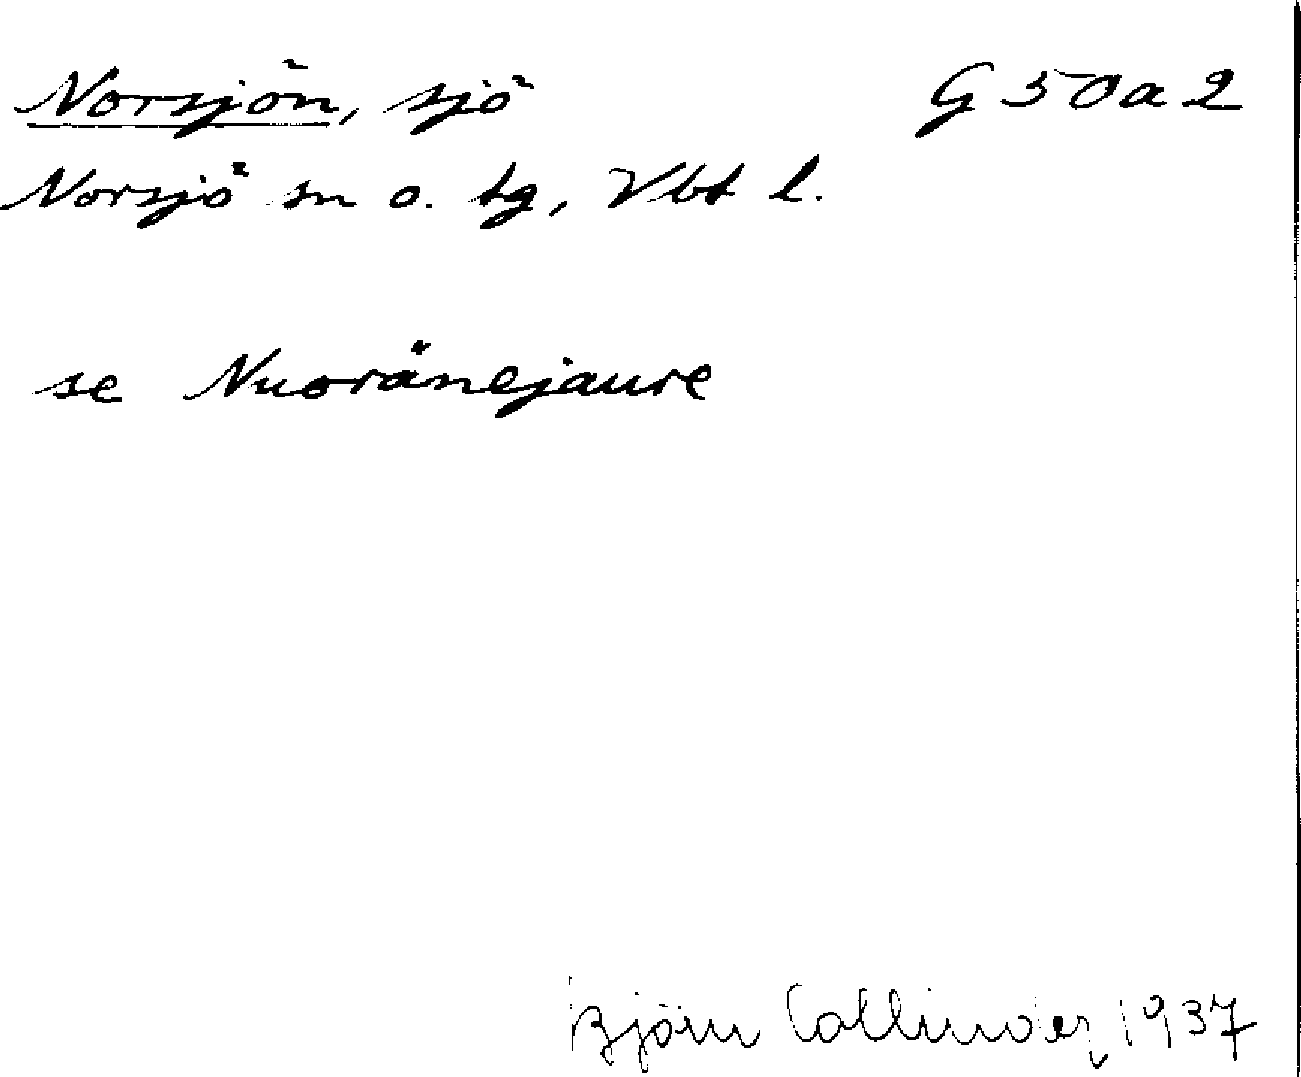 Norsjön, sjö G 50a2
Norsjö sn o. tg, Vbt l.
se Nuoränejaure
Björn Collinder 1937